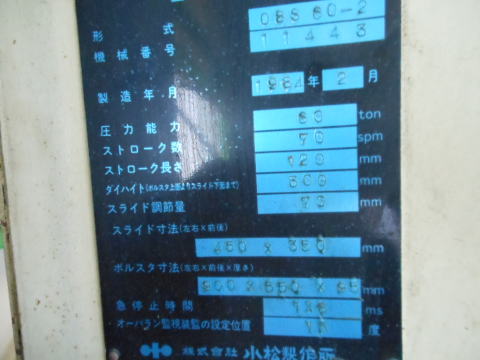 形式 OBS 60-2
機械番号 11443
製造年月 1984年 2月
圧力能力 60 ton
ストローク数 70 spm
ストローク長さ 120 mm
ダイハイト(ボルスタ上面よりスライド下面まで) 300 mm
スライド調節量 70 mm
スライド寸法(左右×前後)
450 x 350 mm
ボルスタ寸法(左右×前後×厚さ)
900 x 550 x mm
急停止時間 ms
オーバラン監視装置の設定位置 度
株式会社 小松製作所